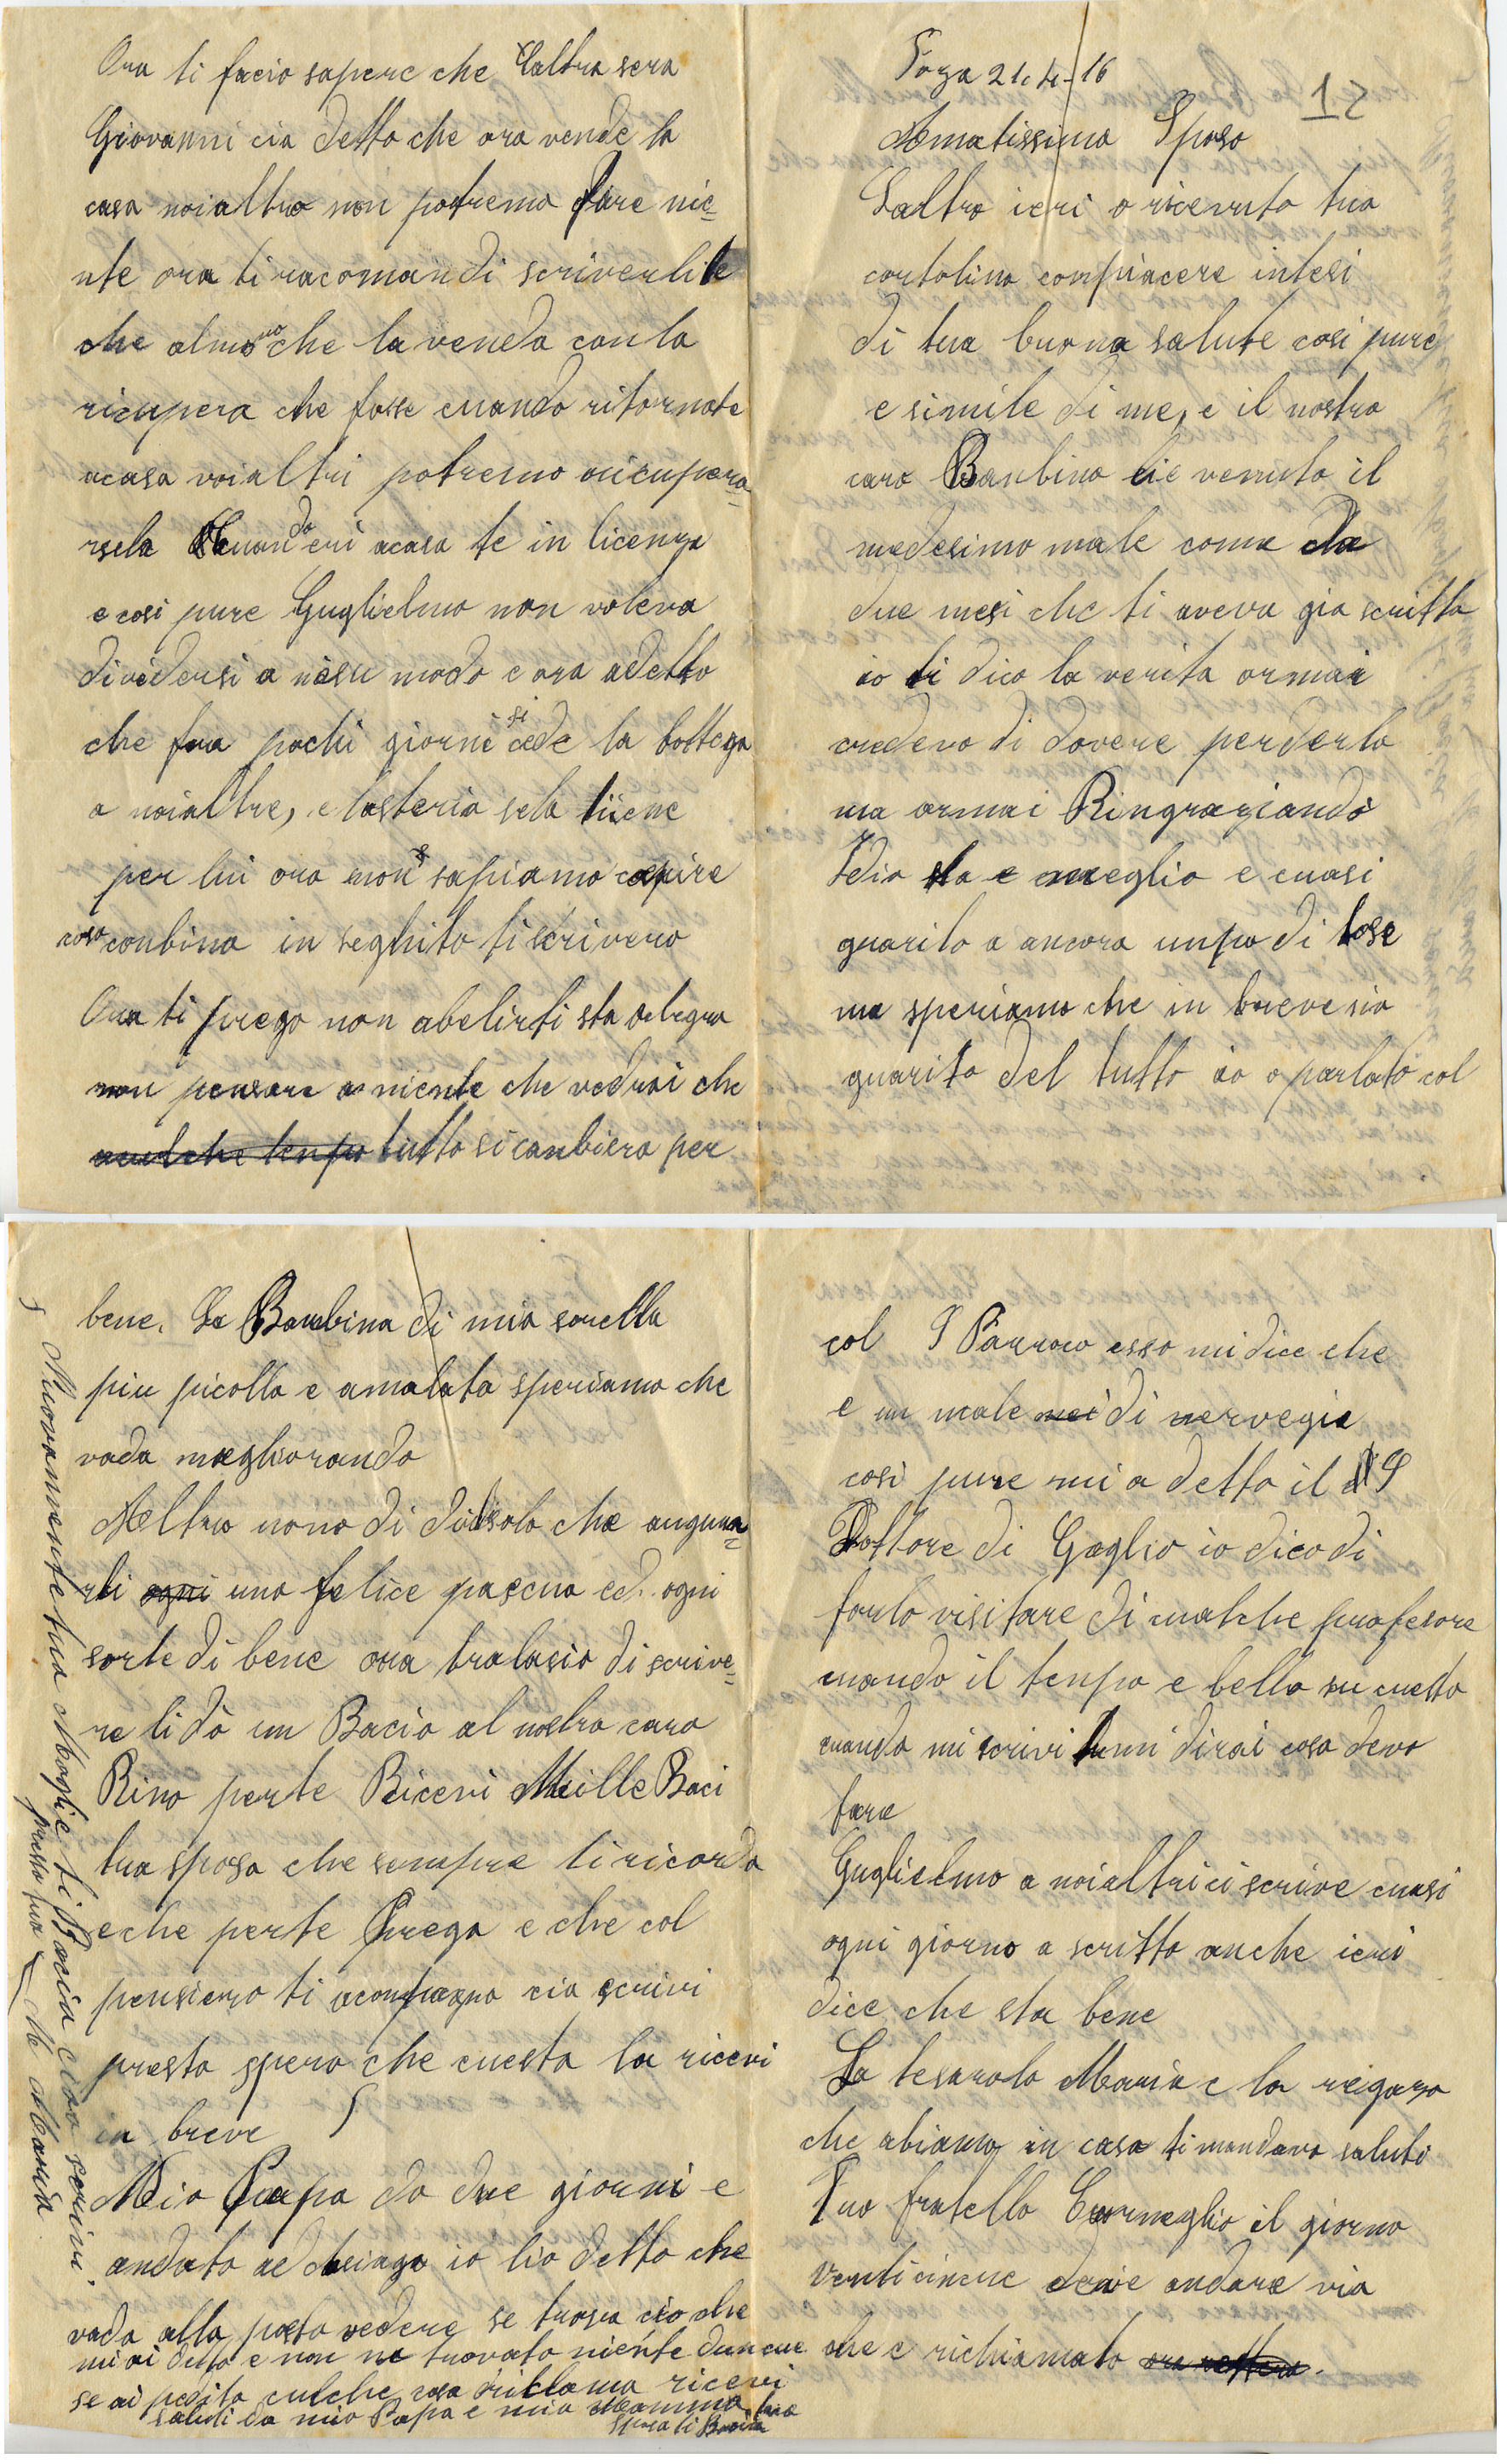 Foza 21-4-16
12
Amatissimo Sposo
Laltro ieri o ricevuto tua
cartolina conpiacere intesi
di tua buona salute cosi pure
e simile di me, e il nostro
caro Banbino lie venuto il
medesimo male come da
due mesi che ti aveva gia scritto
io ti dico la verita ormai
credevo di dovere perderlo
ma ormai Ringraziando
Idio sta e meglio e cuasi
guarito a ancora unpo di tose
ma speriamo che in breve sia
guarito del tutto io o parlato col
col S Parroco esso mi dice che
e un male nei di nervegie
cosi pure mi a detto il S
Dottore di Gaglio io dico di
farlo visitare di cualche profesore
cuando il tenpo e bello su cuesto
cuando mi scrivi tu mi dirai cosa devo
fare
Guglielmo a noialtri ci scrive cuasi
ogni giorno a scritto anche ieri
dice che sta bene
La tesarolo Maria e la regaza
che abiamo in casa ti mandano saluti
Tuo fratello Corneglio il giorno
venticincue deve andare via
che e richiamato
Ora ti facio sapere che laltra sera
Giovanni cia detto che ora vende la
casa noialtre non potremo fare nie-
nte ora ti racomandi scriverlile
che almeno che la venda con la
ricupera che fosse cuando ritornate
acasa voialtri potremo ricupera-
rsela cuando eri acasa te in licenza
e cosi pure Guglielmo non voleva
dividersi a nisu modo e ora adetto
che fra pochi giorni si cede la bottega
a noialtre, e losteria sela tiene
per lui ora non sapiamo capire
cosa conbina in seghito ti scrivero
Ora ti prego non abelirti sta alegro
non pensare a niente che vedrai che
cualche tenpo tutto si canbiera per
bene. La Banbina di mia sorella
piu picolla e amalata speriamo che
vada megliorando
Aeltro nono di dirti solo che augura-
rti ogni una felice pascua ed. ogni
sorte di bene ora tralasio di scrive-
re ti dò un Bacio al nostro caro
Rino perte Ricevi Mille Baci
tua sposa che sempre ti ricorda
eche perte Prega e che col
pensiero ti aconpagno cia scrivi
presto spero che cuesta la ricevi
in breve
Mio Papa da due giorni e
andato ad io lio detto che
vada alla posta vedere se trova cio che
mi ai detto e non na trovato niente duncue
se ai pedito culche cosa riclama ricevi
saluti da mio Papa e mia Mamma tua
sposa ti Bacia
Nuovamente tua Moglie ti Bacia ciao scrivi
presto tua M Maria.